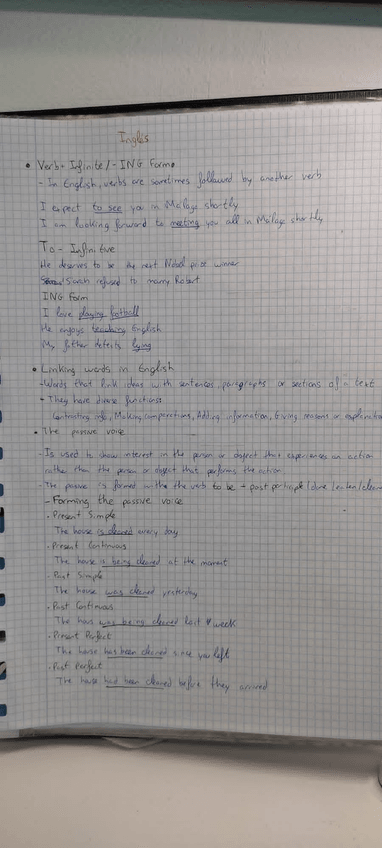 Inglés
• Verb + Infinite / - ING Forms
- In English, verbs are sometimes followed by another verb
I expect to see you in Malaga shortly
I am looking forward to meeting you all in Malaga shortly
To - Infinitive
He deserves to be the next Nobel prize winner
Sarah refused to marry Robert
ING Form
I love playing football
He enjoys teaching English
My father detests lying
• Linking words in English
- Words that link ideas with sentences, paragraphs or sections of a text
- They have diverse functions:
Contrasting info, Making comparections, Adding information, Giving reasons or explanation
• The passive voice
- Is used to show interest in the person or object that experiences an action
rather than the person or object that performs the action
- The passive is formed with the verb to be + past participle (done/eaten/cleaned
- Forming the passive voice
• Present Simple
The house is cleaned every day
• Present Continuous
The house is being cleaned at the moment
• Past Simple
The house was cleaned yesterday
• Past Continuous
The hous was being cleaned last week
• Present Perfect
The house has been cleaned since you left
• Past Perfect
The house had been cleaned before they arrived